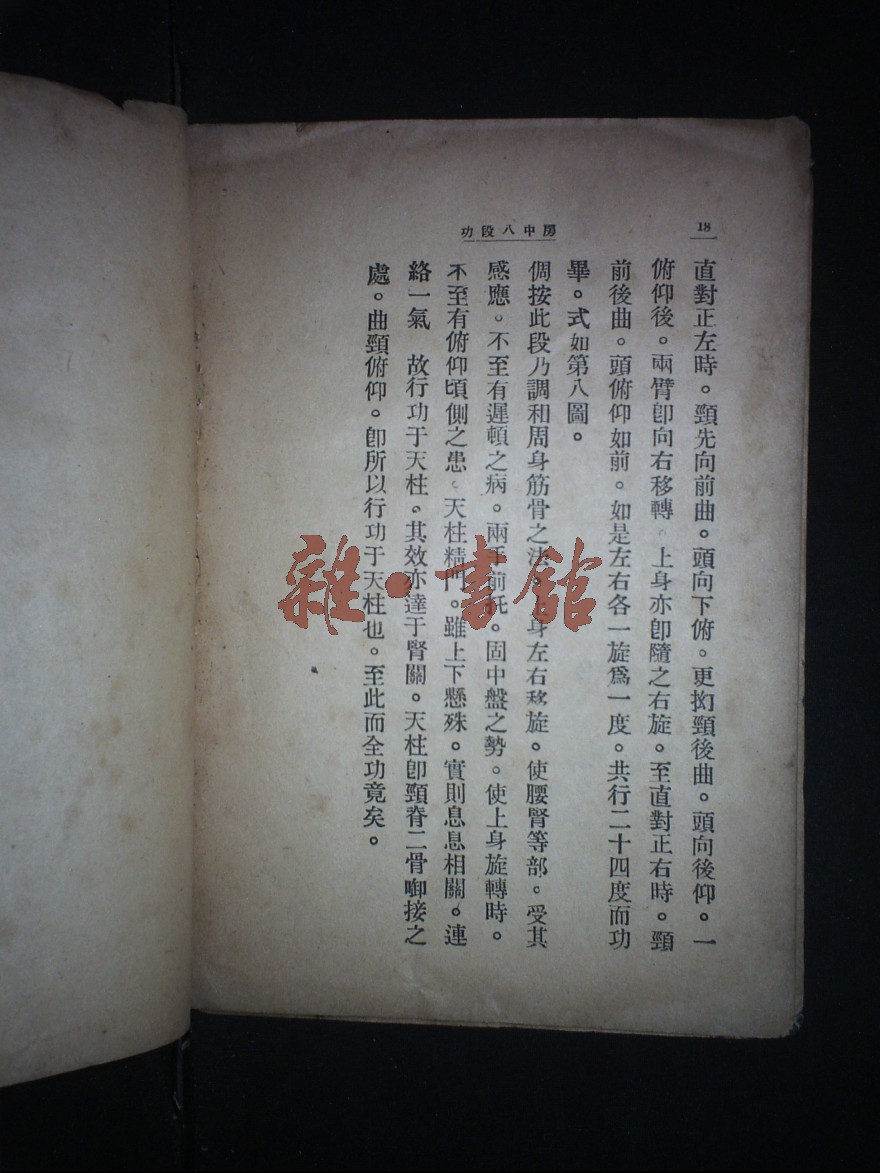 18
房中八段功
直對正左時。頸先向前曲。頭向下俯。更抝頸後曲。頭向後仰。一
俯仰後。兩臂卽向右移轉。上身亦卽隨之右旋。至直對正右時。頸
前後曲。頭俯仰如前。如是左右各一旋爲一度。共行二十四度而功
畢。式如第八圖。
倜按此段乃調和周身筋骨之法。身左右移旋。使腰腎等部。受其
感應。不至有遲頓之病。兩手前托。固中盤之勢。使上身旋轉時。
不至有俯仰頃側之患。天柱精門。雖上下懸殊。實則息息相關。連
絡一氣 故行功于天柱。其效亦達于腎關。天柱卽頸脊二骨啣接之
處。曲頸俯仰。卽所以行功于天柱也。至此而全功竟矣。
雜·書館